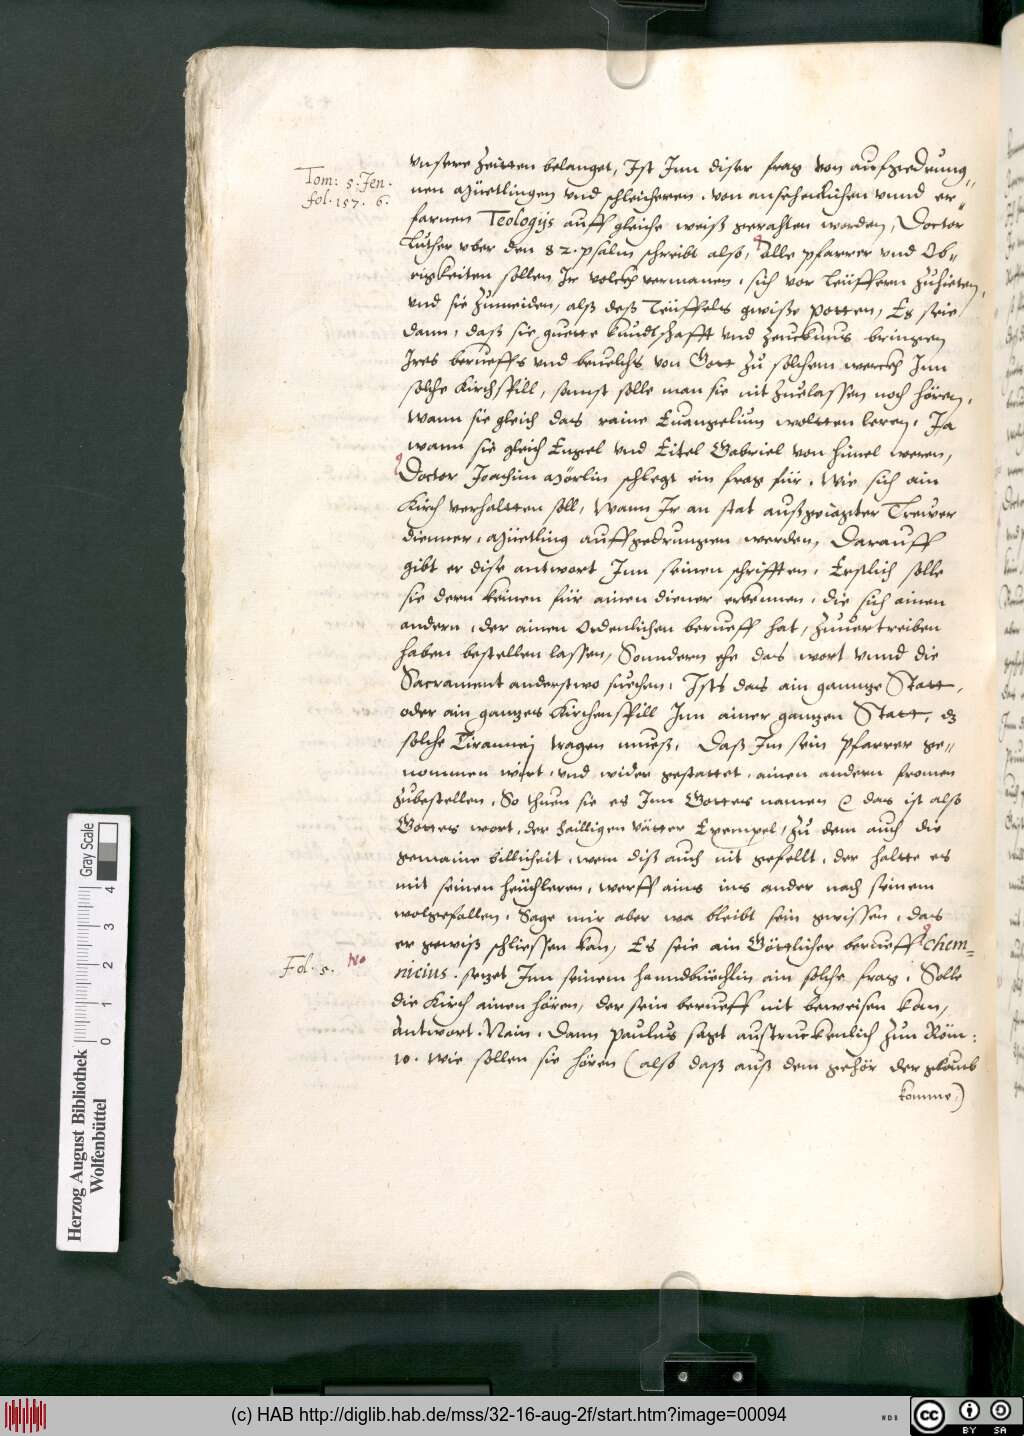 Tom: 5. Jen.
fol. 157. 6.
vnsere Zeitten belanget, Ist Inn diser frag von auffgedrung=
nen Müetlingen vnd schleicheren. von ansehenlichen vnnd er=
farnen Teologijs auff gleiche weiß gerahten worden, Doctor
Luther vber den 82. psalm schreibt also, Alle pfarrer vnd Ob=
rigkeiten sollen Ir volckh vermanen, sich vor leüffern zuhüeten,
vnd sie zumeiden, alß deß Teüffels gwiße potten, Es seie
dann, daß sie guette kundtschafft vnd zeucknus bringen
Ires berueffs vnd beuelchs von Gott zu solchem werckh Inn
solche Kirchspill, sonnst solle man sie nit zuelassen noch hören,
wann sie gleich das raine Euangelium woltten leren, Ja
wann sie gleich Engel vnd Eitel Gabriel von himel weren,
Doctor Joachim Mörlin schlegt ein frag für, Wie sich ain
Kirch verhaltten soll, Wann Ir an stat außgejagter Trewer
dienner, Müetling auffgedrungen werden, Darauff
gibt er dise antwort Inn seinen schrifften, Erstlich solle
sie dern keinen für ainen diener erkennen, die sich ainen
andern, der ainen ordenlichen berueff hat, zuuertreiben
haben bestellen lassen, Sonndern ehe das wort vnnd die
Sacrament anderstwo suechen, Ists das ain ganntze Statt,
oder ain gantzes Kirchenspill Inn ainer gantzen Statt, dz
solche Tiranneij tragen mueß, Daß Im sein Pfarrer ge=
nommen wirt, vnd wider gestattet, ainen andern fromen
zubestellen, So thuen sie es Inn Gottes namen das ist also
Gottes wort, der hailligen vätter Exempel, zu dem auch die
gemaine billicheit, wem diß auch nit gefellt, der haltte es
mit seinen heüchleren, werff ains ins ander nach seinem
wolgefallen, Sage mir aber wa bleibt sein gwissen, das
er gewiß schliessen kan, Es seie ain Göttlicher berueff Chem=
Fol. 5. No
nicius. setzet Inn seinem hanndbüechlin ain solche frag, Solle
die Kirch ainen hören, der sein berueff nit beweisen kan,
Antwort. Nain. Dann Paulus sagt austruckenlich Zun Röm:
10. wie sollen sie hören (also daß auß dem gehör der glaub
komme,)
Herzog August Bibliothek
Wolfenbüttel
Gray Scale
0 1 2 3 4
(c) HAB http://diglib.hab.de/mss/32-16-aug-2f/start.htm?image=00094
WDB
cc BY SA